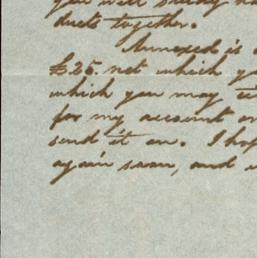 you will
ducts together.
Annexed is a
£25. net which yo
which you may
for my account or
send it on. I hop
again soon, and